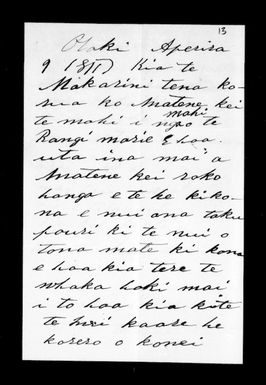 13
Otaki Aperira
9 1877 Kia te
Makarini tena ko
rua ko Matene kei
te mahi i mahi nga te
Rangi marie E hoa
uta ina mai a
Matene kei roko
hanga e te he kiko
na e nui ana taku
pouri ki te nui o
tona mate ki kona
e hoa kia tere te
whaka hoki mai
i to hoa kia kite
te iwi kaore he
korero o konei